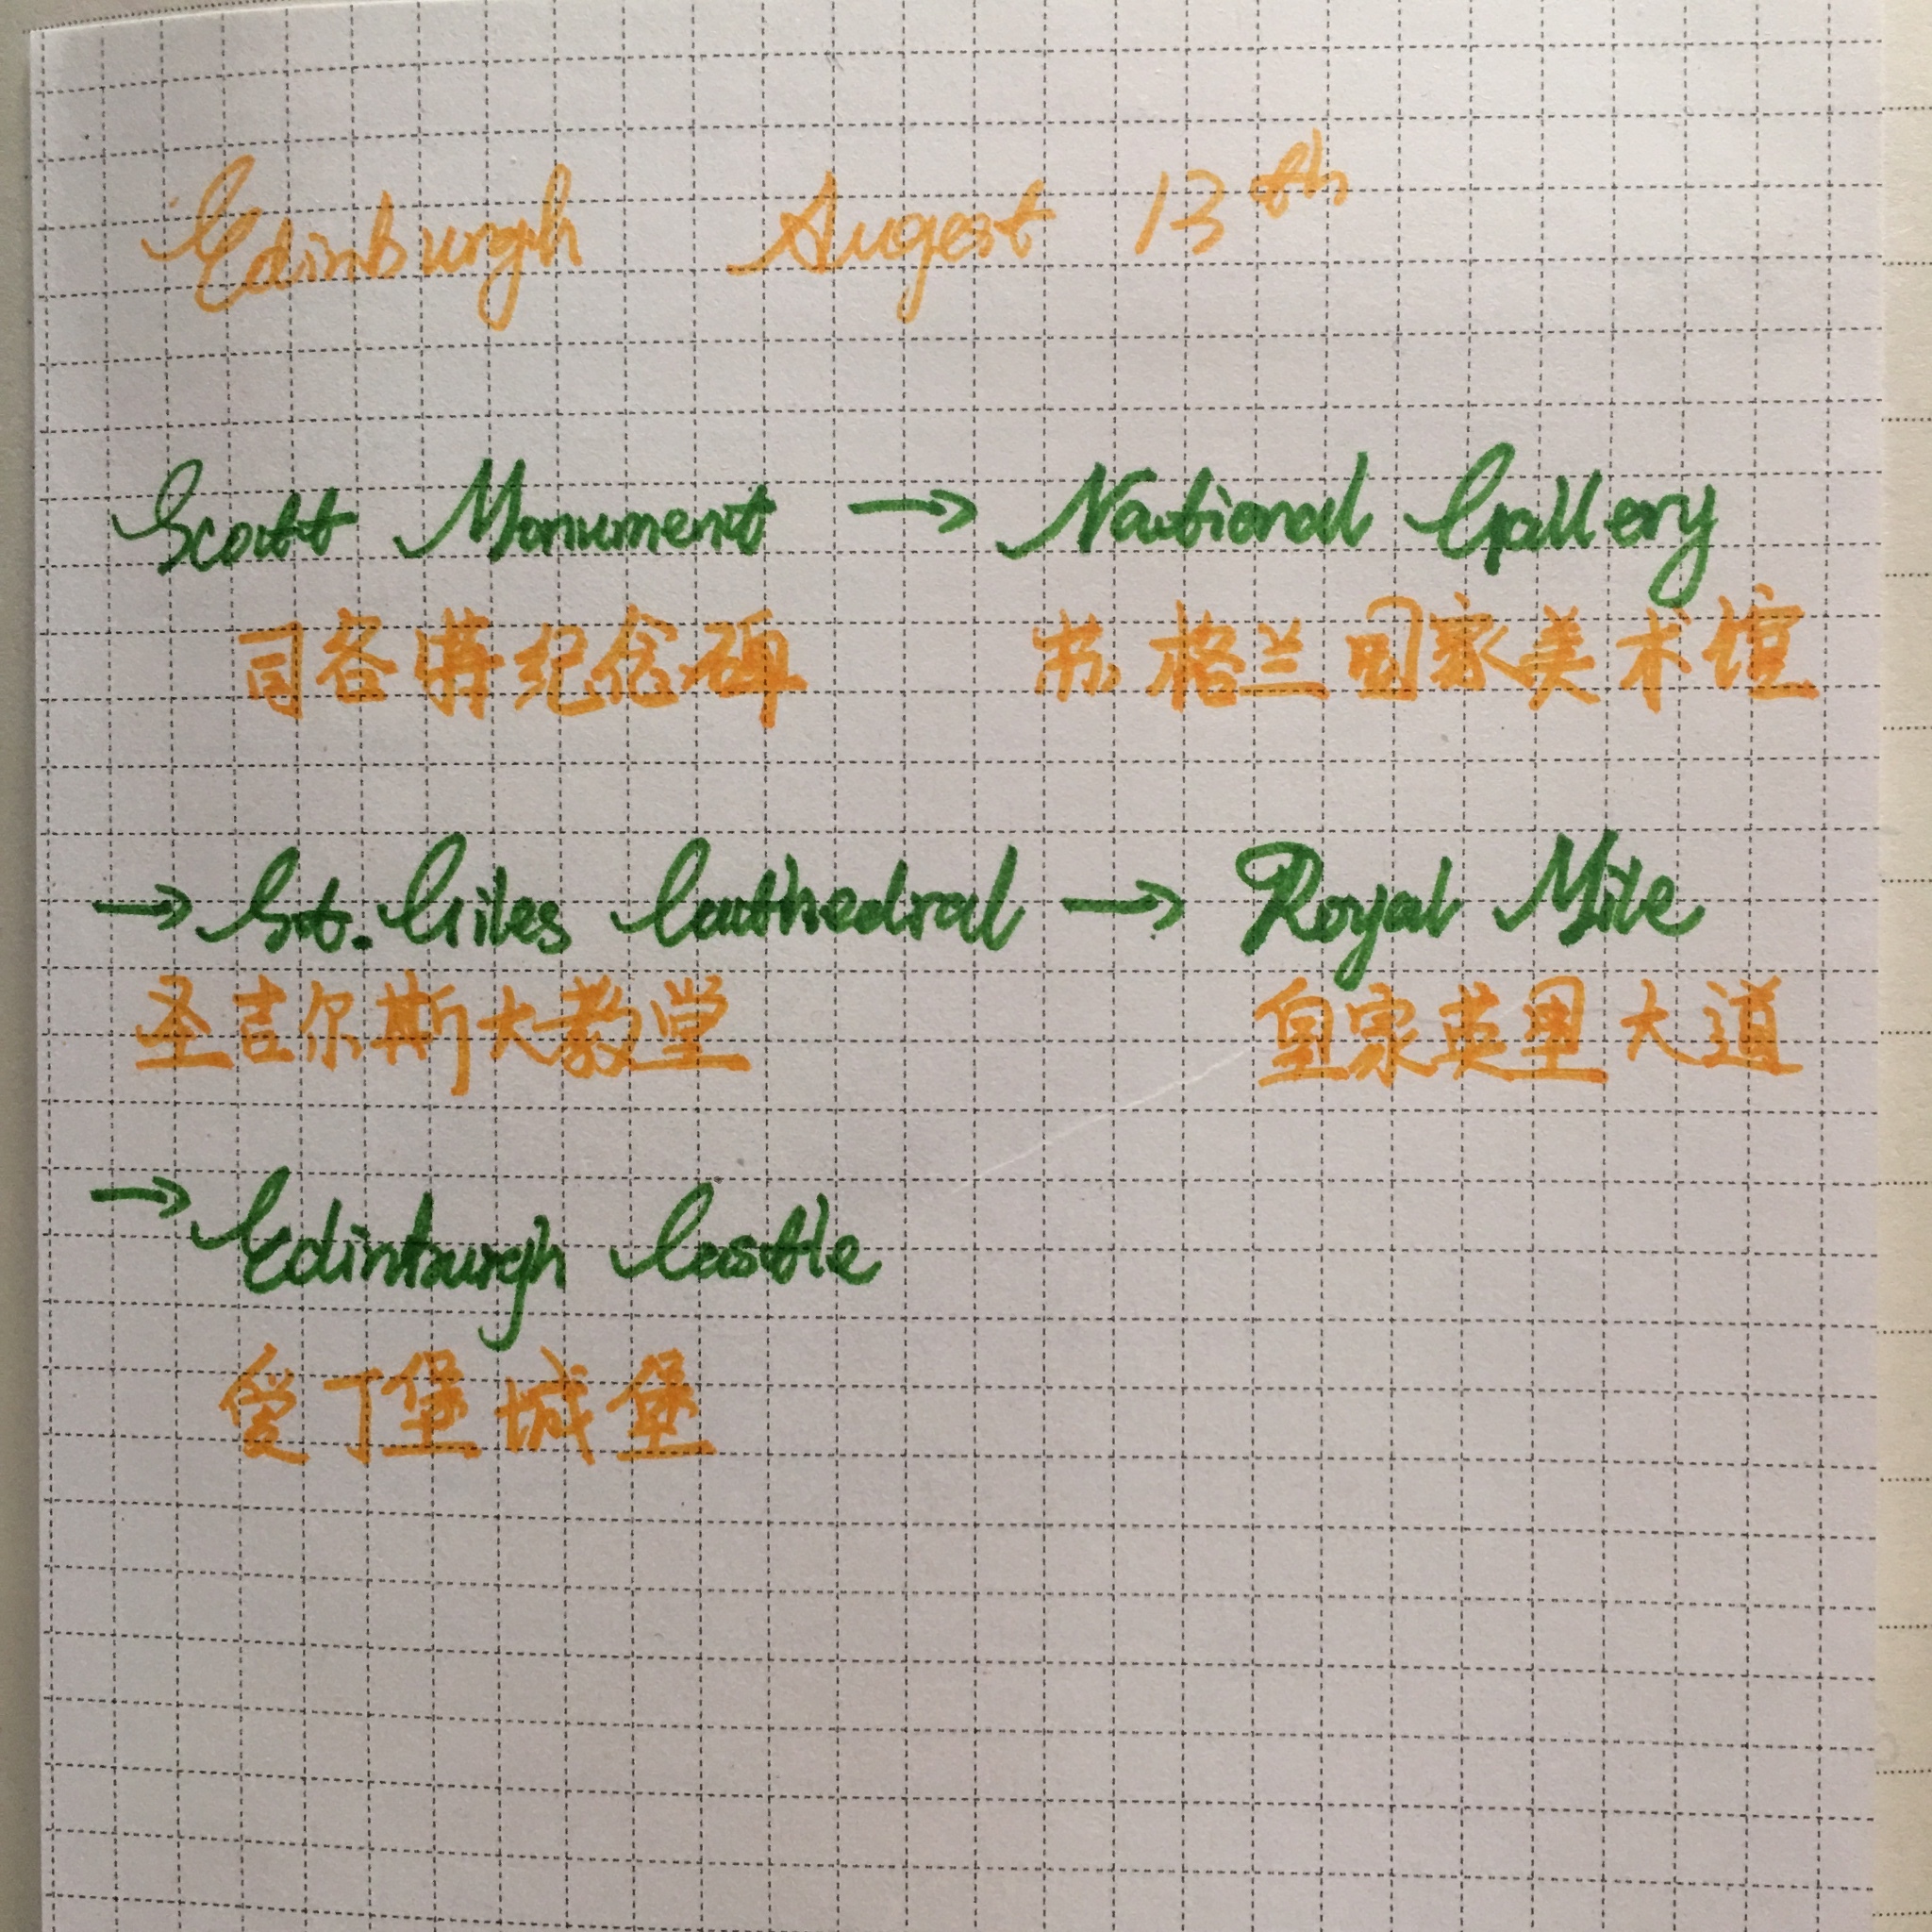 Edinburgh Augest 13th
Scott Monument → National Gallery
司各特纪念碑 苏格兰国家美术馆
→ St. Giles Cathedral → Royal Mile
圣吉尔斯大教堂 皇家英里大道
→ Edinburgh Castle
爱丁堡城堡